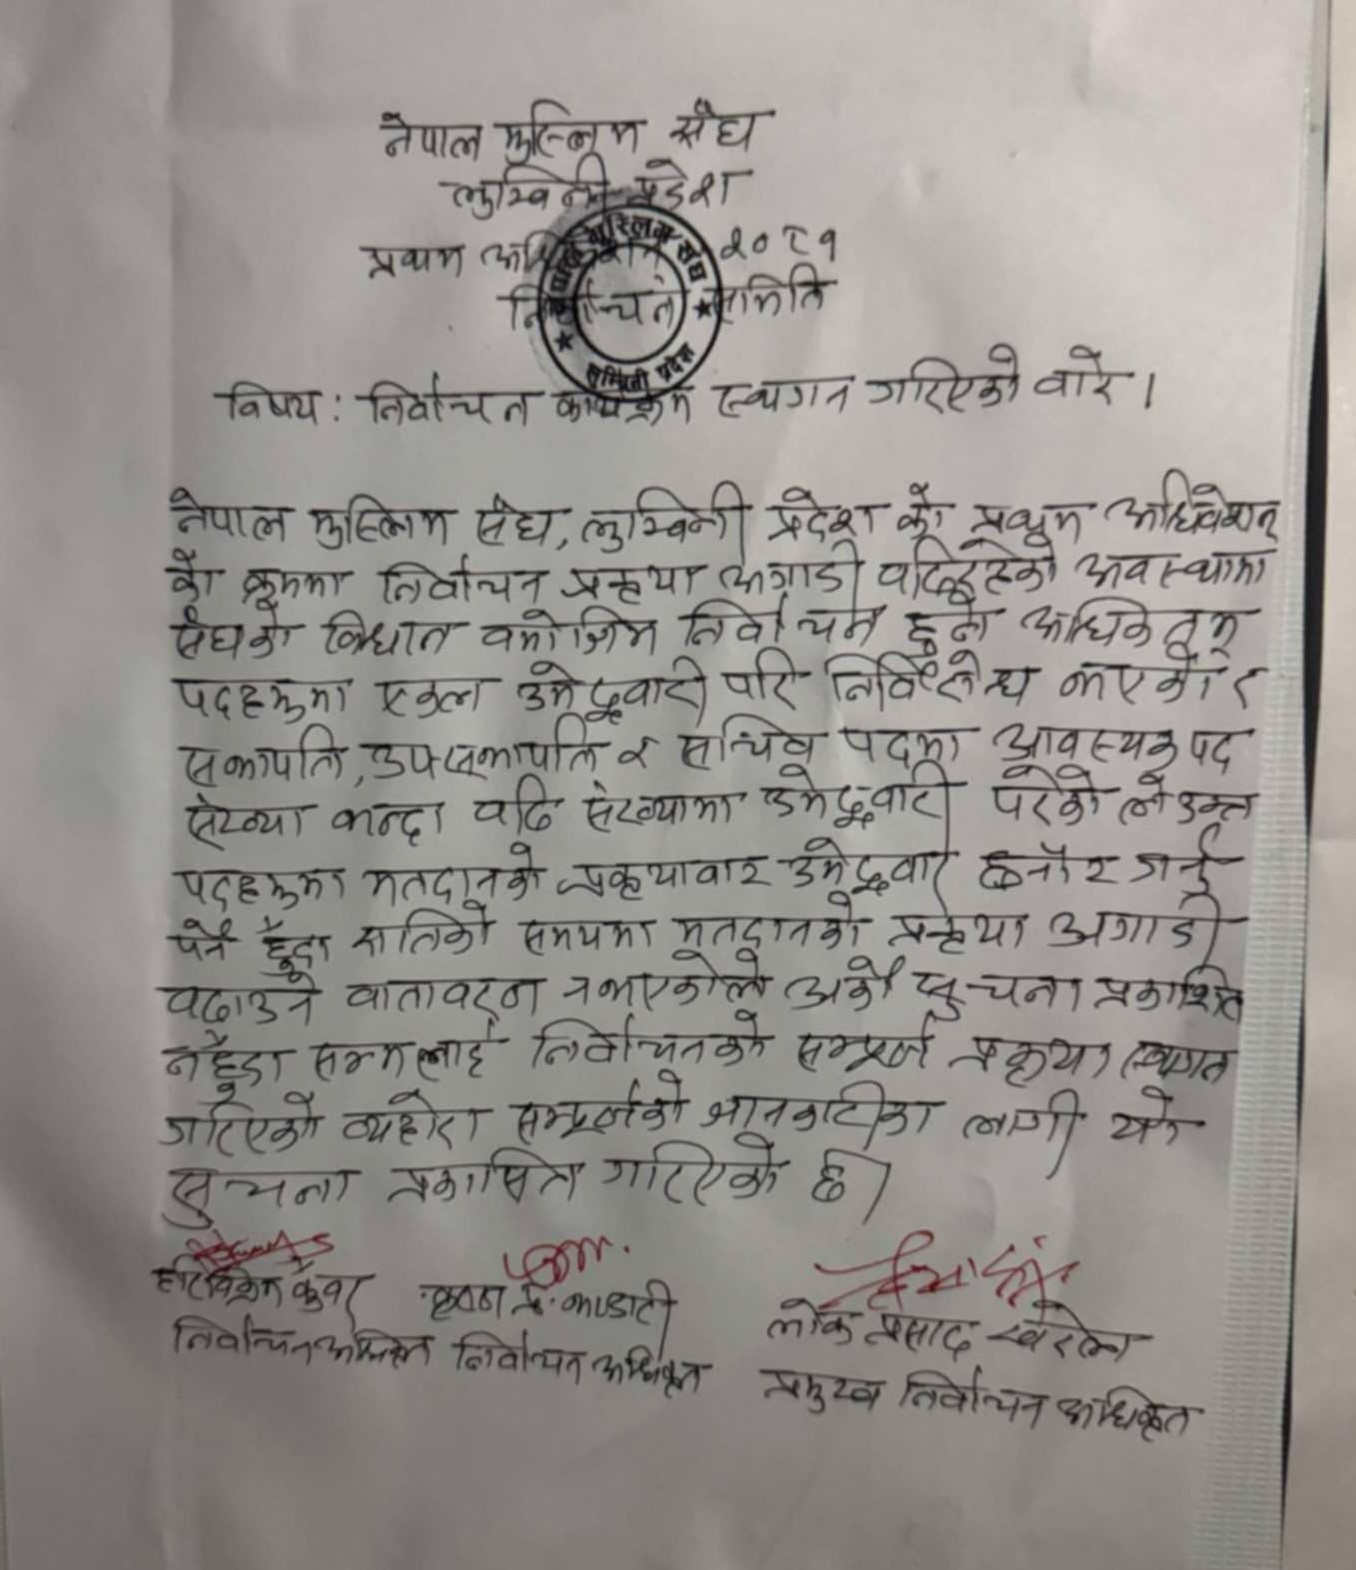 नेपाल मुस्लिम संघ
लुम्बिनी प्रदेश
प्रथम अधिवेशन २०८१
निर्वाचन समिति
मुस्लिम संघ
लुम्बिनी प्रदेश
विषय : निर्वाचन कार्यक्रम स्थगन गरिएको वारे ।
नेपाल मुस्लिम संघ, लुम्बिनी प्रदेश को प्रथम अधिवेशन
को क्रममा निर्वाचन प्रकृया अगाडी वढिरहेको अवस्थामा
संघको विधान वमोजिम निर्वाचन हुने अधिकतम
पदहरुमा एकल उमेद्ववारी परि निर्विरोध भएको र
सभापति, उपसभापति र सचिव पदमा आवस्यक पद
संख्या भन्दा वढि संख्यामा उमेद्ववारी परेको ले उक्त
पदहरुमा मतदानको प्रकृयावाट उमेद्ववार छनौट गर्नु
पर्ने हुँदा रातिको समयमा मतदानको प्रकृया अगाडी
वढाउने वातावरण नभएकोले अर्को सुचना प्रकाशित
नहुँदा सम्मलाई निर्वाचनको सम्पूर्ण प्रकृया स्थगत
गरिएको व्यहोरा सम्पूर्णको जानकारीका लागी यो
सुचना प्रकासित गरिएको छ।
हरिविक्रम कुँवर कृष्ण प्र. भण्डारी लोक प्रसाद खरेल
निर्वाचन अधिकृत निर्वाचन अधिकृत प्रमुख निर्वाचन अधिकृत